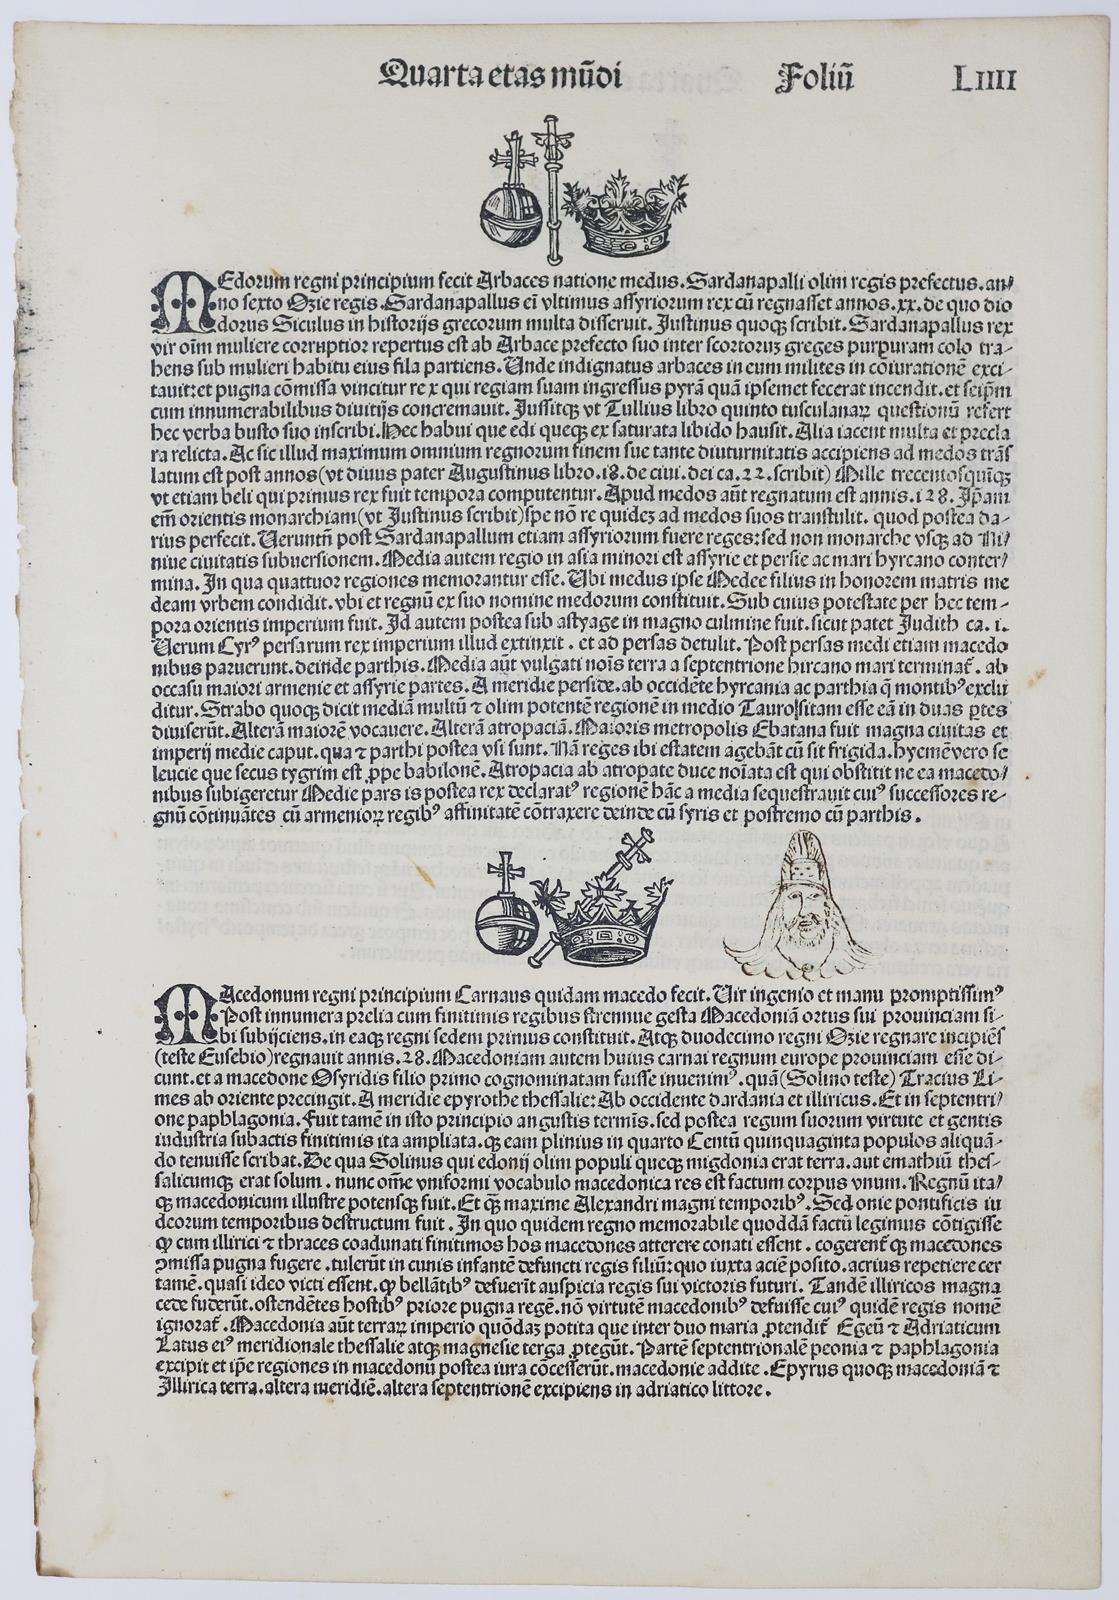 Quarta etas mūdi Foliū LIIII
MEdorum regni principium fecit Arbaces natione medus. Sardanapalli olim regis prefectus. an/
no sexto Ozie regis. Sardanapallus eī vltimus assyriorum rex cū regnasset annos .xx. de quo dio
dorus Siculus in historijs grecorum multa disseruit. Justinus quoqȝ scribit. Sardanapallus rex
vir oīm muliere corruptior repertus est ab Arbace prefecto suo inter scortoruȝ greges purpuram colo tra-
hens sub mulieri habitu eius fila partiens. Unde indignatus arbaces in eum milites in cōiurationē exci-
tauit: et pugna cōmissa vincitur rex qui regiam suam ingressus pyrā quā ipsemet fecerat incendit. et seip̄m
cum innumerabilibus diuitijs concremauit. Jussitqȝ vt Tullius libro quinto tusculanaꝝ questionū refert
hec verba busto suo inscribi. Hec habui que edi queqȝ exsaturata libido hausit. Alia iacent multa et precla
ra relicta. Ac sic illud maximum omnium regnorum finem sue tante diuturnitatis accipiens ad medos trās
latum est post annos (vt diuus pater Augustinus libro .18. de ciui. dei ca. 22. scribit) Mille trecentosquīqȝ
vt etiam beli qui primus rex fuit tempora computentur. Apud medos aūt regnatum est annis .128. Ip̄am
em̄ orientis monarchiam (vt Justinus scribit) spe nō re quideȝ ad medos suos transtulit. quod postea da-
rius perfecit. Ueruntn̄ post Sardanapallum etiam assyriorum fuere reges: sed non monarche vsqȝ ad Ni-
niue ciuitatis subuersionem. Media autem regio in asia minori est assyrie et persie ac mari hyrcano conter/
mina. In qua quattuor regiones memorantur esse. Ubi medus ipse Medee filius in honorem matris me
deam vrbem condidit. vbi et regnū ex suo nomine medorum constituit. Sub cuius potestate per hec tem-
pora orientis imperium fuit. Id autem postea sub astyage in magno culmine fuit. sicut patet Judith ca. i.
Uerum Cyrꝰ persarum rex imperium illud extinxit. et ad persas detulit. Post persas medi etiam macedo
nibus paruerunt. deinde parthis. Media aūt vulgati noīs terra a septentrione hircano mari terminat̄. ab
occasu maiori armenie et assyrie partes. A meridie perside. ab occidēte hyrcania ac parthia q̄ montibꝰ exclu
ditur. Strabo quoqȝ dicit mediā multū ⁊ olim potentē regionē in medio Tauro sitam esse eā in duas ꝑtes
diuiserūt. Alterā maiorē vocauere. Alterā atropaciā. Maioris metropolis Ebatana fuit magna ciuitas et
imperij medie caput. qua ⁊ parthi postea vsi sunt. Nā reges ibi estatem agebāt cū sit frigida. hyemē vero se
leucie que secus tygrim est ꝓpe babilonē. Atropacia ab atropate duce noīata est qui obstitit ne ea macedo/
nibus subigeretur Medie pars is postea rex declaratꝰ regionē hāc a media sequestrauit cuiꝰ successores re-
gnū cōtinuātes cū armenioꝝ regibꝰ affinitatē cōtraxere deinde cū syris et postremo cū parthis.
MAcedonum regni principium Carnaus quidam macedo fecit. Uir ingenio et manu promptissimꝰ
Post innumera prelia cum finitimis regibus strennue gesta Macedoniā ortus sui prouinciam si-
bi subijciens. in eaqȝ regni sedem primus constituit. Atqȝ duodecimo regni Ozie regnare incipiēs
(teste Eusebio) regnauit annis .28. Macedoniam autem huius carnai regnum europe prouinciam esse di-
cunt. et a macedone Osyridis filio primo cognominatam fuisse inuenimꝰ. quā (Solino teste) Tracius Li-
mes ab oriente precingit. A meridie epyrothe thessalie: Ab occidente dardania et illiricus. Et in septentri/
one paphlagonia. Fuit tamē in isto principio angustis termīs. sed postea regum suorum virtute et gentis
industria subactis finitimis ita ampliata. qȝ eam plinius in quarto Centū quinquaginta populos aliquā-
do tenuisse scribat. De qua Solinus qui edonij olim populi queqȝ migdonia erat terra. aut emathiū thes-
salicumqȝ erat solum. nunc om̄e vniformi vocabulo macedonica res est factum corpus vnum. Regnū ita/
qȝ macedonicum illustre potensqȝ fuit. Et qȝ maxime Alexandri magni temporibꝰ. Sed onie pontificis iu
deorum temporibus destructum fuit. In quo quidem regno memorabile quoddā factū legimus cōtigisse
qp cum illirici ⁊ thraces coadunati finitimos hos macedones atterere conati essent. cogerent̄ qȝ macedones
ꝯmissa pugna fugere. tulerūt in cunis infantē defuncti regis filiū: quo iuxta aciē posito. acrius repetiere cer
tamē. quasi ideo victi essent. qp bellātibꝰ defuerūt auspicia regis sui victoris futuri. Tandē illiricos magna
cede fuderūt. ostendētes hostibꝰ priore pugna regē. nō virtutē macedonibꝰ defuisse cuiꝰ quidē regis nomē
ignorat̄. Macedonia aūt terraꝝ imperio quōdaȝ potita que inter duo maria ꝓtendit̄ Egeū ⁊ Adriaticum
Latus eiꝰ meridionale thessalie atqȝ magnesie terga ꝓtegūt. Partē septentrionalē peonia ⁊ paphlagonia
excipit et ip̄e regiones in macedonū postea iura cōcesserūt. macedonie addite. Epyrus quoqȝ macedoniā ⁊
Illirica terra. altera meridiē. altera septentrionē excipiens in adriatico littore.